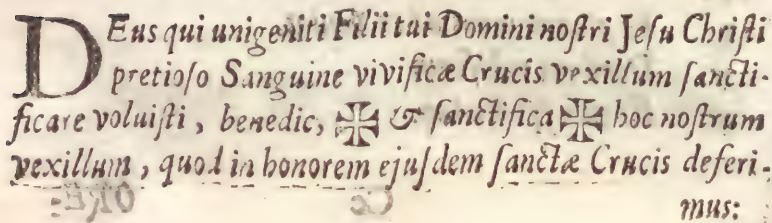 DEus qui unigeniti Filii tui Domini noſtri Jeſu Chriſti
pretioſo Sanguine vivificæ Crucis vexillum ſancti-
ficare voluiſti, benedic, ✠ & ſanctifica ✠ hoc noſtrum
vexillum, quod in honorem ejuſdem ſanctæ Crucis deferi-
mus: